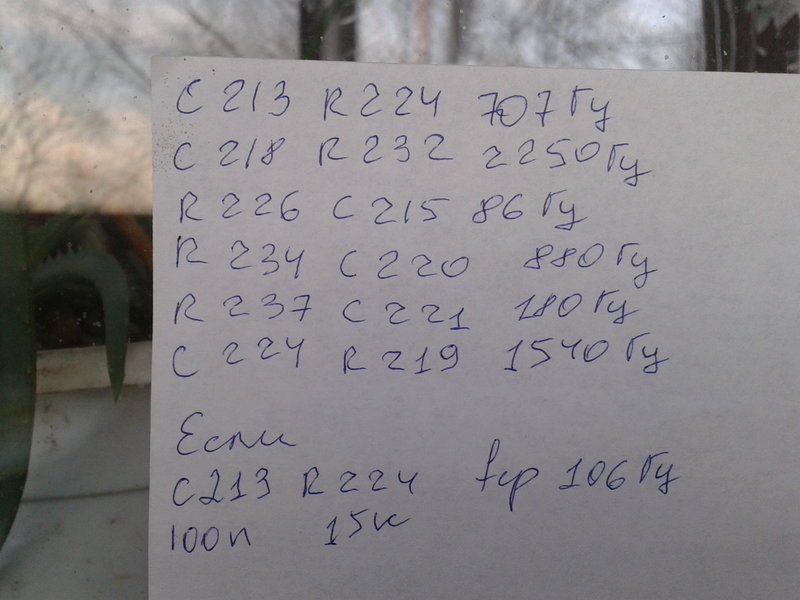 C 213 R 224 707 Гц
C 218 R 232 2250 Гц
R 226 C 215 86 Гц
R 234 C 220 880 Гц
R 237 C 221 180 Гц
C 224 R 219 1540 Гц
Если
C213 R224 fср 106 Гц
100п 15к